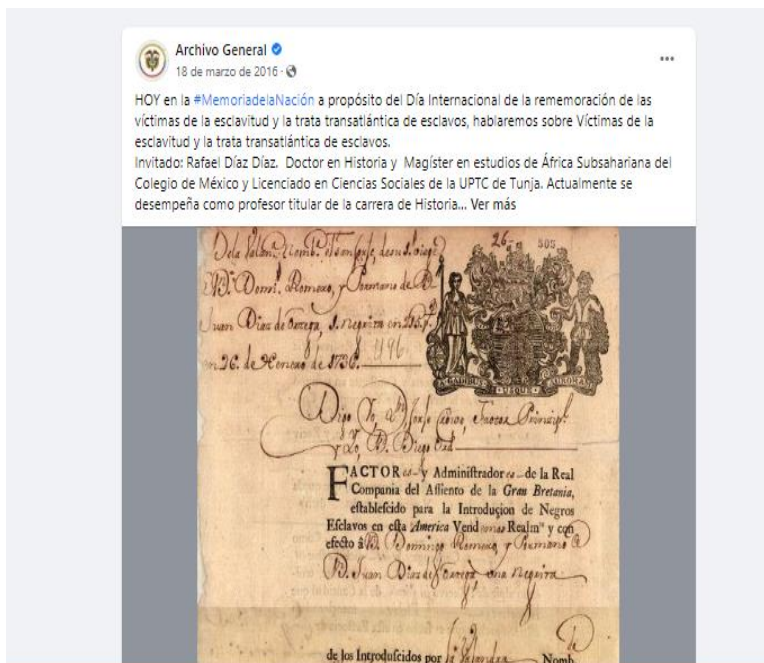 Archivo General
18 de marzo de 2016 ·
HOY en la #MemoriadelaNación a propósito del Día Internacional de la rememoración de las
víctimas de la esclavitud y la trata transatlántica de esclavos, hablaremos sobre Víctimas de la
esclavitud y la trata transatlántica de esclavos.
Invitado: Rafael Díaz Díaz. Doctor en Historia y Magíster en estudios de África Subsahariana del
Colegio de México y Licenciado en Ciencias Sociales de la UPTC de Tunja. Actualmente se
desempeña como profesor titular de la carrera de Historia... Ver más
26 505
Romero, y
Juan Diaz de
en 26. de de 1736. 496
A GADIBUS USQUE AURORAM
Digo Yo, Dn Factor
y Yo, D. Diego
FACTORes y Adminiſtradores de la Real
Compania del Aſſiento de la Gran Bretania,
eſtableſcido para la Introduçion de Negros
Eſclavos en eſta America Vendemos Realmte y con
efecto â D. Domingo Romero, y
D. Juan Diaz de una Negrita
de los Introduſcidos por la Nomb.